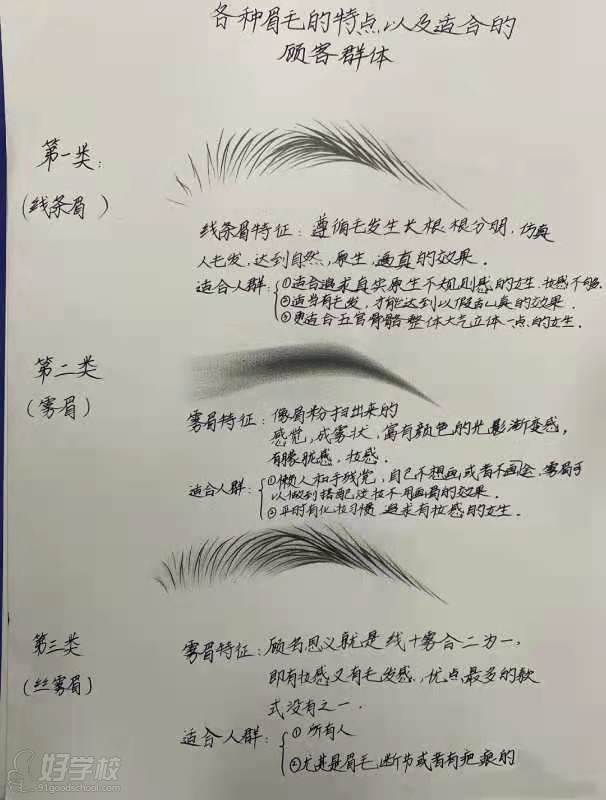 各种眉毛的特点以及适合的
顾客群体
第一类:
(线条眉)
线条眉特征: 遵循毛发生长根根分明,仿真
人毛发,达到自然,原生,逼真的效果.
适合人群: ①适合追求真实原生不规则感的女生,妆感不够.
②适身有毛发,才能达到以假乱真的效果.
③更适合五官骨骼整体大气立体一点的女生.
第二类
(雾眉)
雾眉特征: 像眉粉扫出来的
感觉,成雾状,富有颜色的光影渐变感,
有朦胧感,妆感.
适合人群: ①懒人和手残党,自己不想画或者不画会,雾眉可
以做到搭配淡妆不用画眉的效果.
②平时有化妆习惯 追求有妆感的女生.
第三类
(丝雾眉)
雾眉特征: 顾名思义就是线+雾合二为一,
即有妆感又有毛发感,优点最多的款
式没有之一.
适合人群: ①所有人
②尤其是眉毛,断节或者有疤痕的
好学校
91goodschool.com